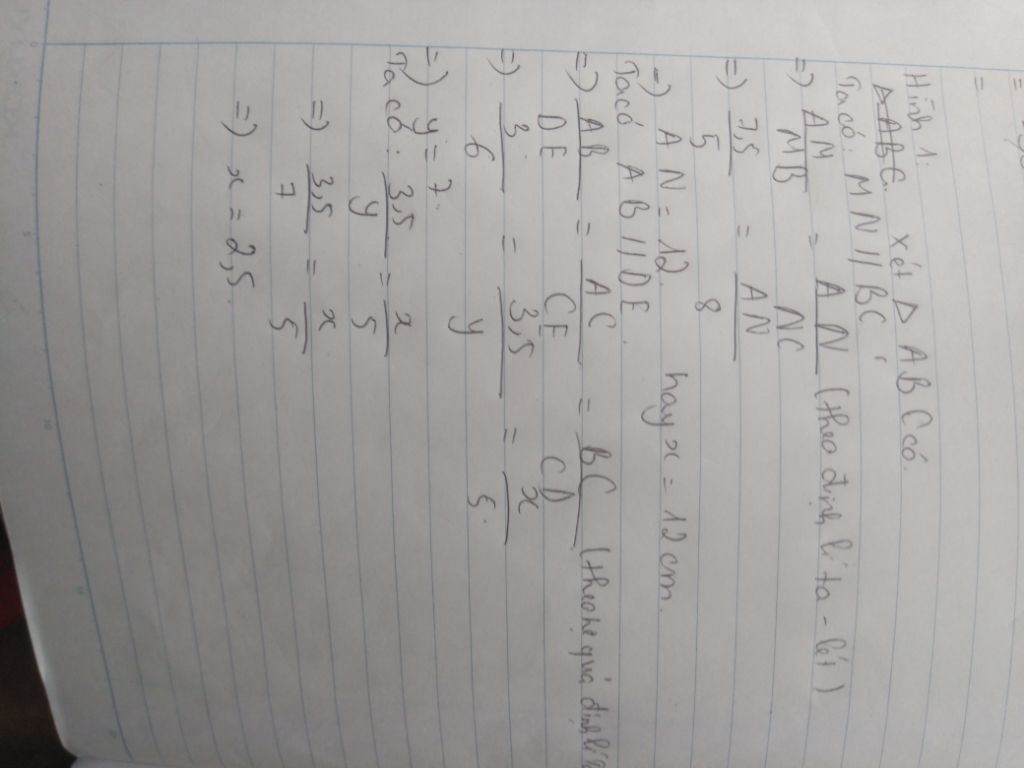 Hình 1. xét Δ ABC có.
ΔABC.
Ta có: MN // BC
=) AM/MB = AN/NC (theo định lí ta-lét)
=) 7,5/5 = AN/8
=) AN = 12. hay x = 12 cm.
Ta có AB // DE.
=) AB/DE = AC/CE = BC/CD (theo hệ quả định lí
=) 3/6 = 3,5/y = x/5.
=) y = 7.
Ta có: 3,5/y = x/5
=) 3,5/7 = x/5
=) x = 2,5.